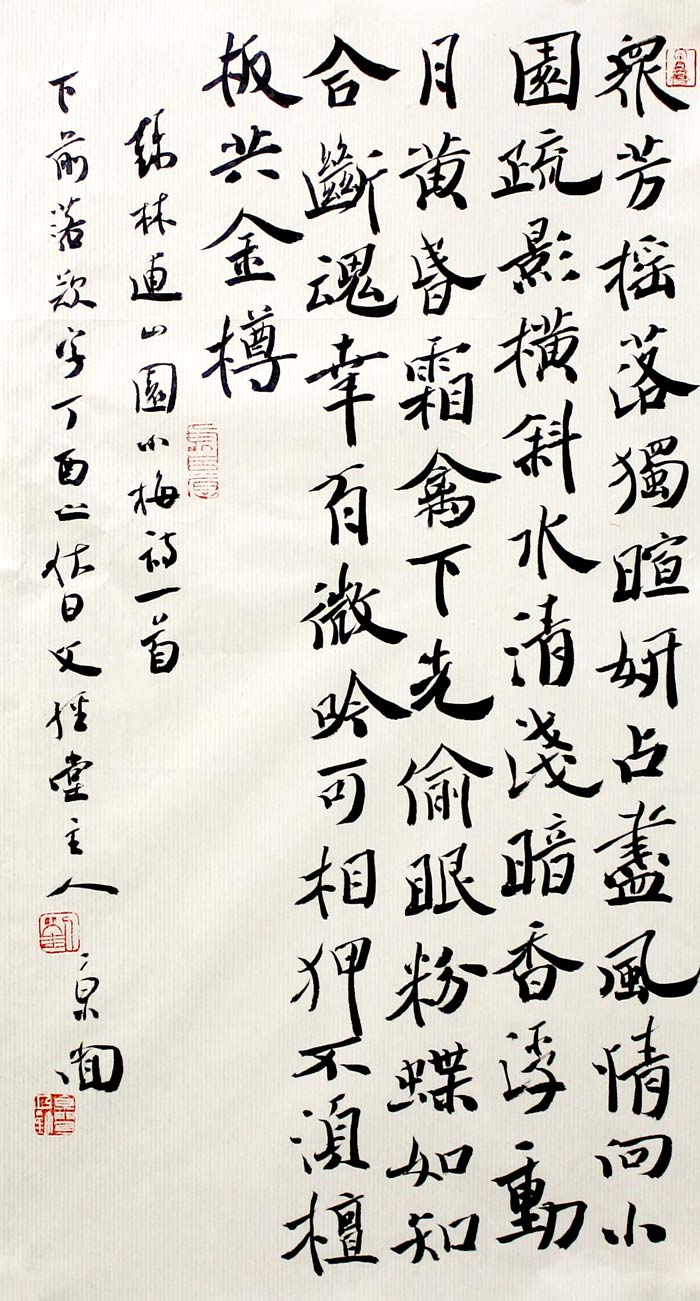 眾芳搖落獨暄妍占盡風情向小
園疏影橫斜水清淺暗香浮動
月黃昏霜禽下先偷眼粉蝶如知
合斷魂幸有微吟可相狎不須檀
板共金樽
錄林逋山園小梅詩一首
下前落欲字丁酉仁依日文種堂主人
京圃